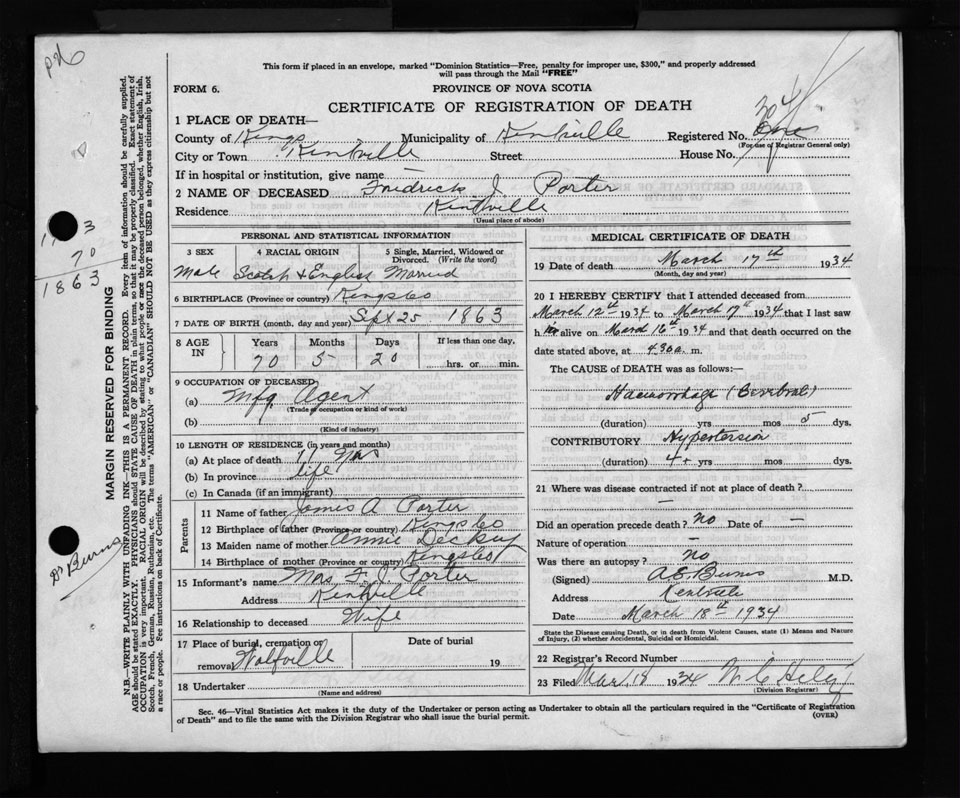 This form if placed in an envelope, marked "Dominion Statistics—Free, penalty for improper use, $300," and properly addressed
will pass through the Mail "FREE"
FORM 6.
PROVINCE OF NOVA SCOTIA
CERTIFICATE OF REGISTRATION OF DEATH
1 PLACE OF DEATH—
County of Kings Municipality of Kentville Registered No.
(For use of Registrar General only)
City or Town Kentville Street House No.
If in hospital or institution, give name —
2 NAME OF DECEASED Fredrick J. Porter
Residence Kentville
(Usual place of abode)
PERSONAL AND STATISTICAL INFORMATION
3 SEX 4 RACIAL ORIGIN 5 Single, Married, Widowed or Divorced. (Write the word)
Male Scotch & English Married
6 BIRTHPLACE (Province or country) Kings Co
7 DATE OF BIRTH (month, day and year) Sept 25 1863
8 AGE IN Years Months Days If less than one day,
70 5 20 hrs. or min.
9 OCCUPATION OF DECEASED
(a) Mfg. Agent
(Trade or occupation or kind of work)
(b)
(Kind of industry)
10 LENGTH OF RESIDENCE (in years and months)
(a) At place of death 17 yrs
(b) In province life
(c) In Canada (if an immigrant)
Parents
11 Name of father James A Porter
12 Birthplace of father (Province or country) Kings Co
13 Maiden name of mother Annie
14 Birthplace of mother (Province or country) Kings Co
15 Informant's name Mrs. F. J. Porter
Address Kentville
16 Relationship to deceased Wife
17 Place of burial, cremation or removal Wolfville Date of burial
19
18 Undertaker
(Name and address)
MEDICAL CERTIFICATE OF DEATH
19 Date of death March 17th 1934
(Month, day and year)
20 I HEREBY CERTIFY that I attended deceased from
March 12th 1934 to March 17th 1934 that I last saw
h im alive on March 16th 1934 and that death occurred on the
date stated above, at 4.30 a. m.
The CAUSE of DEATH was as follows:—
Haemorrhage (Cerebral)
(duration) yrs mos 5 dys.
CONTRIBUTORY Hypertension
(duration) 4+ yrs mos dys.
21 Where was disease contracted if not at place of death?
—
Did an operation precede death? No Date of —
Nature of operation —
Was there an autopsy? No
(Signed) A.E. Burns M.D.
Address Kentville
Date March 18th 1934
State the Disease causing Death, or in death from Violent Causes, state (1) Means and Nature
of Injury, (2) whether Accidental, Suicidal or Homicidal.
22 Registrar's Record Number
23 Filed Mar. 18 1934
(Division Registrar)
Sec. 46—Vital Statistics Act makes it the duty of the Undertaker or person acting as Undertaker to obtain all the particulars required in the "Certificate of Registration
of Death" and to file the same with the Division Registrar who shall issue the burial permit.
(OVER)
MARGIN RESERVED FOR BINDING
N.B.—WRITE PLAINLY WITH UNFADING INK—THIS IS A PERMANENT RECORD. Every item of information should be carefully supplied.
AGE should be stated EXACTLY. PHYSICIANS should STATE CAUSE OF DEATH in plain terms, so that it may be properly classified. Exact statement of
OCCUPATION is very important. RACIAL ORIGIN will be described by stating what people or race the deceased person belonged, whether English, Irish,
Scotch, French, German, Russian, Ruthenian, etc. The terms "AMERICAN" or "CANADIAN" SHOULD NOT BE USED as they express citizenship but not
a race or people. See instructions on back of Certificate.
70
1863
Dr Burns